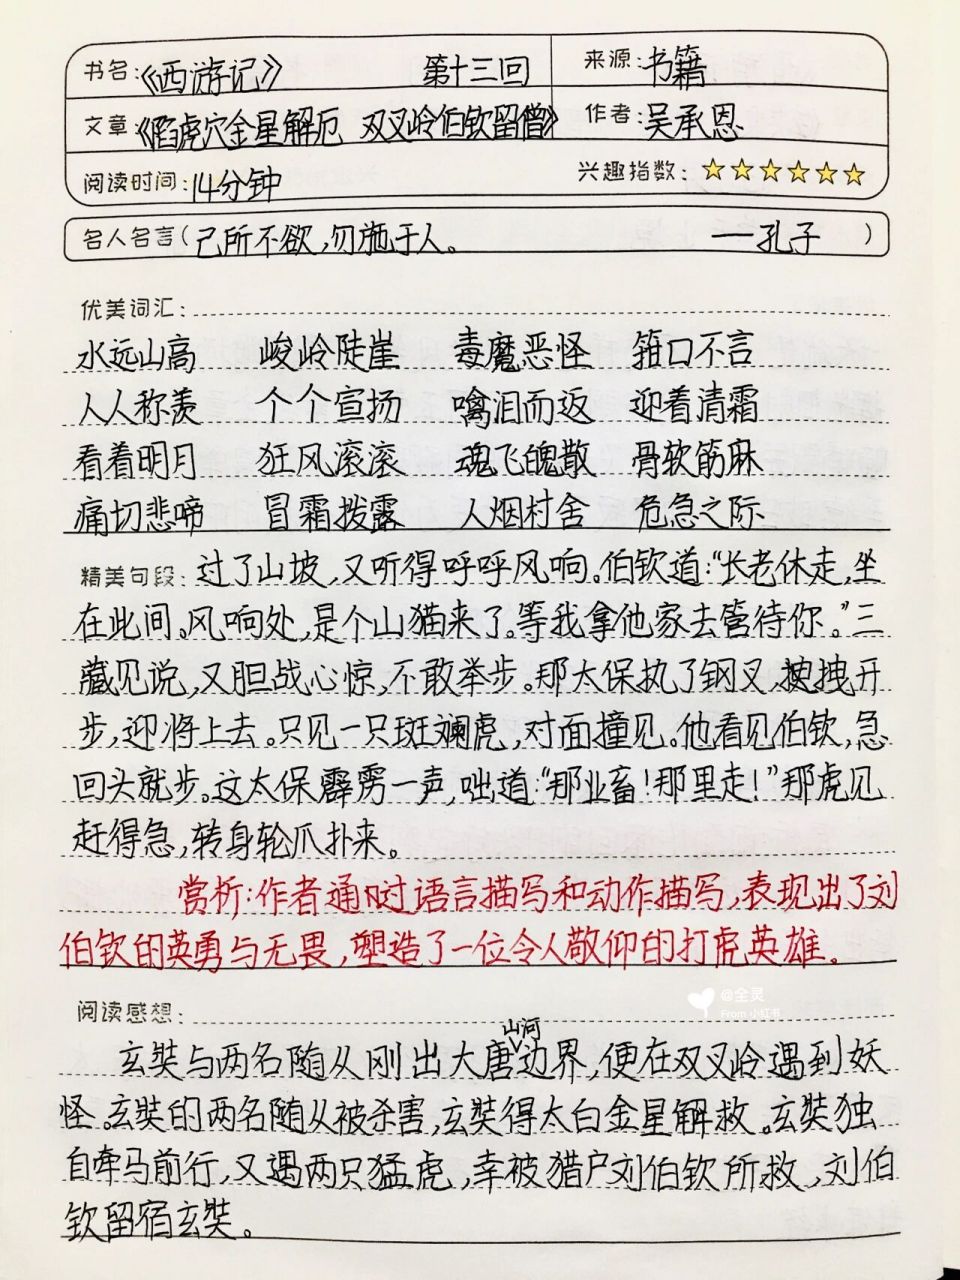 书名:《西游记》 第十三回 来源:书籍
文章《陷虎穴金星解厄 双叉岭伯钦留僧》 作者:吴承恩
阅读时间:14分钟 兴趣指数:
名人名言(己所不欲,勿施于人。 —孔子 )
优美词汇:
水远山高 峻岭陡崖 毒魔恶怪 箝口不言
人人称羡 个个宣扬 噙泪而返 迎着清霜
看着明月 狂风滚滚 魂飞魄散 骨软筋麻
痛切悲啼 冒霜拨露 人烟村舍 危急之际
精美句段:过了山坡,又听得呼呼风响。伯钦道:“长老休走,坐
在此间。风响处,是个山猫来了。等我拿他家去管待你。”三
藏见说,又胆战心惊,不敢举步。那太保执了钢叉,拽开
步,迎将上去。只见一只斑斓虎,对面撞见。他看见伯钦,急
回头就步。这太保霹雳一声,咄道:“那业畜!那里走!”那虎见
赶得急,转身轮爪扑来。
赏析:作者通过语言描写和动作描写,表现出了刘
伯钦的英勇与无畏,塑造了一位令人敬仰的打虎英雄.
@全灵
From 小红书
阅读感想:
玄奘与两名随从刚出大唐山河边界,便在双叉岭遇到妖
怪。玄奘的两名随从被杀害,玄奘得太白金星解救。玄奘独
自牵马前行,又遇两只猛虎,幸被猎户刘伯钦所救,刘伯
钦留宿玄奘。